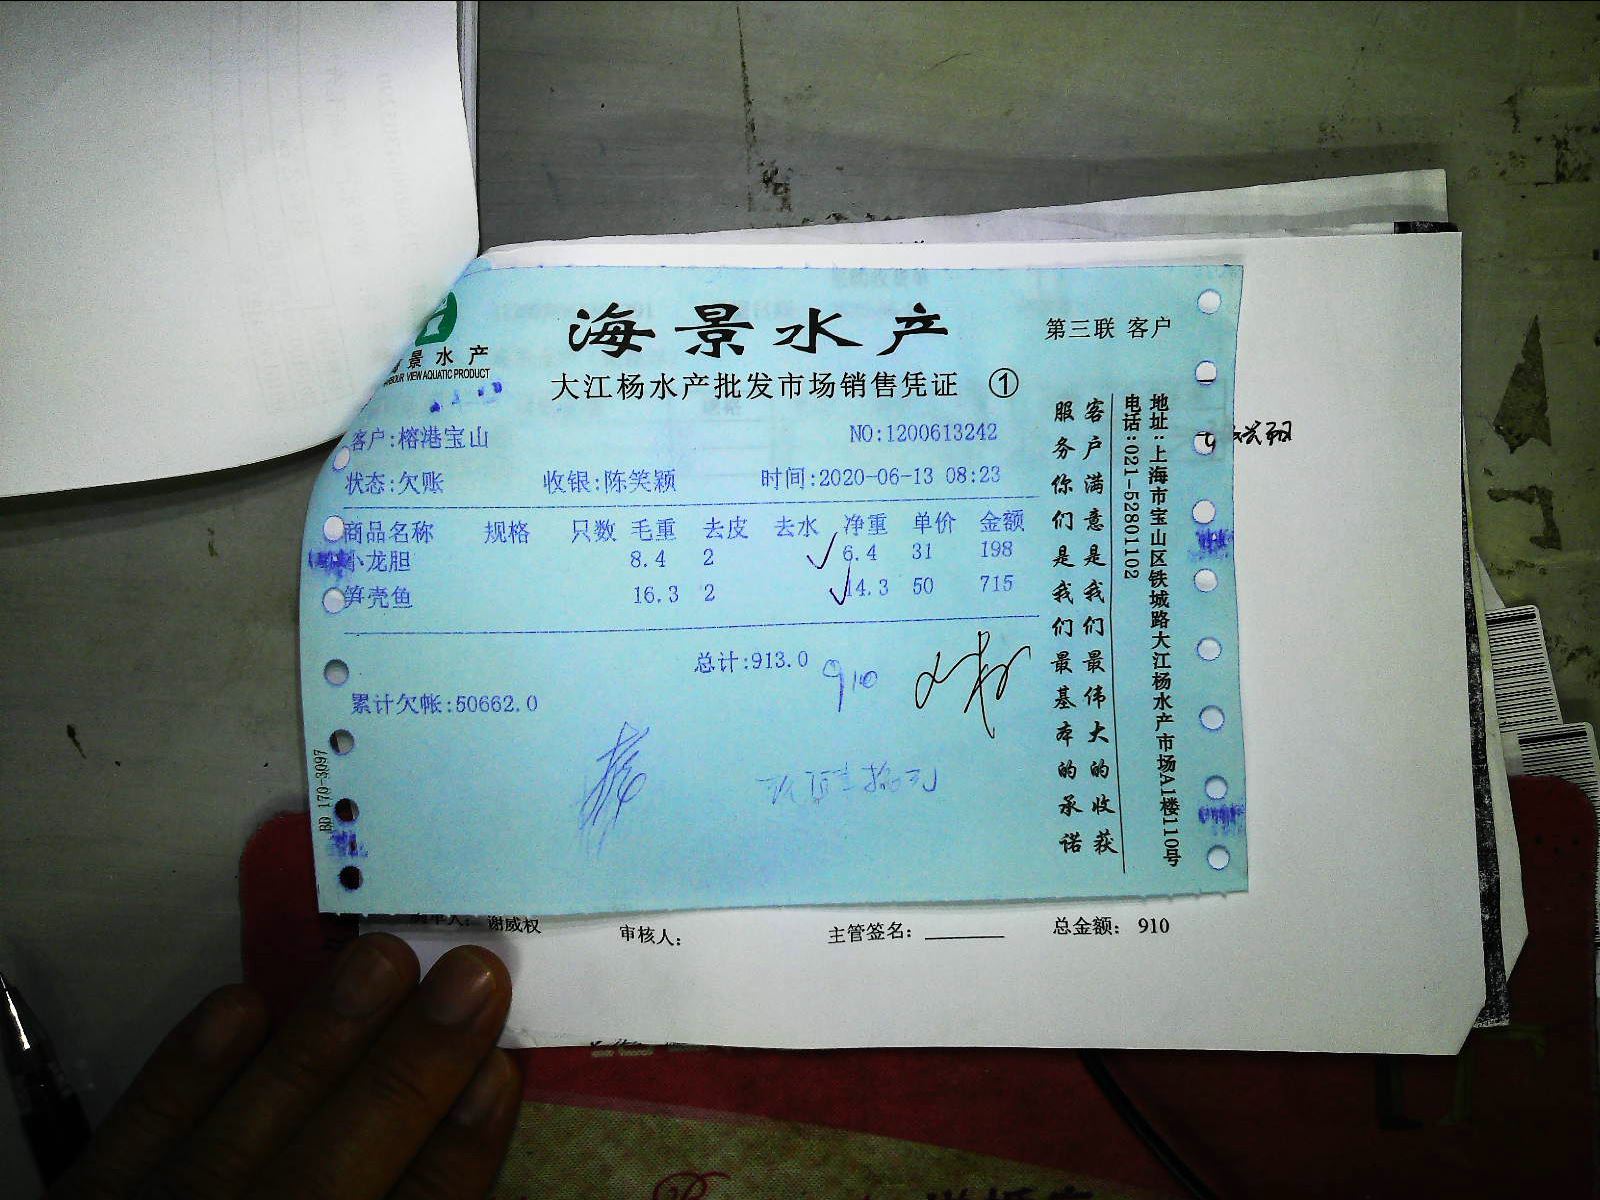 海景水产
第三联 客户
景水产
VIEW AQUATIC PRODUCT
大江杨水产批发市场销售凭证 ①
客户:榕港宝山 NO:1200613242
状态:欠账 收银:陈笑颖 时间:2020-06-13 08:23
商品名称 规格 只数 毛重 去皮 去水 净重 单价 金额
小龙胆 8.4 2 6.4 31 198
笋壳鱼 16.3 2 14.3 50 715
总计:913.0 910
累计欠帐:50662.0
BD 170-3097
客户满意是我们最伟大的收获
服务你们是我们最基本的承诺
地址:上海市宝山区铁城路大江杨水产市场A1楼110号
电话:021-52801102
谢威权 审核人: 主管签名: 总金额: 910